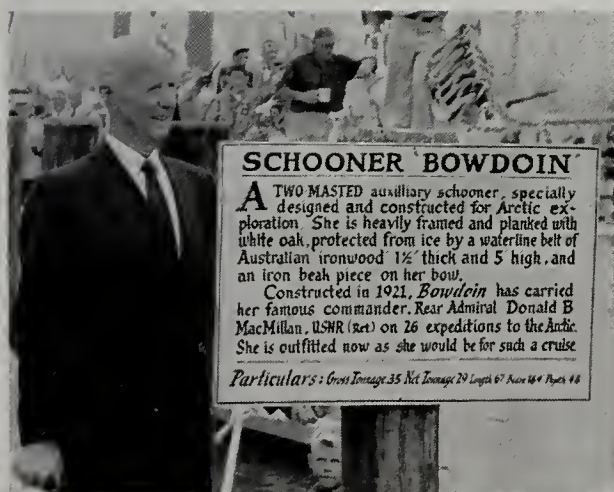 SCHOONER 'BOWDOIN'
A TWO MASTED auxilliary schooner, specially
designed and constructed for Arctic ex-
ploration. She is heavily framed and planked with
white oak, protected from ice by a waterline belt of
Australian ironwood 1½" thick and 5' high, and
an iron beak piece on her bow.
Constructed in 1921, Bowdoin has carried
her famous commander, Rear Admiral Donald B
MacMillan, USNR (Ret) on 26 expeditions to the Arctic.
She is outfitted now as she would be for such a cruise
Particulars: Gross Tonnage 35 Net Tonnage 29 Length 67